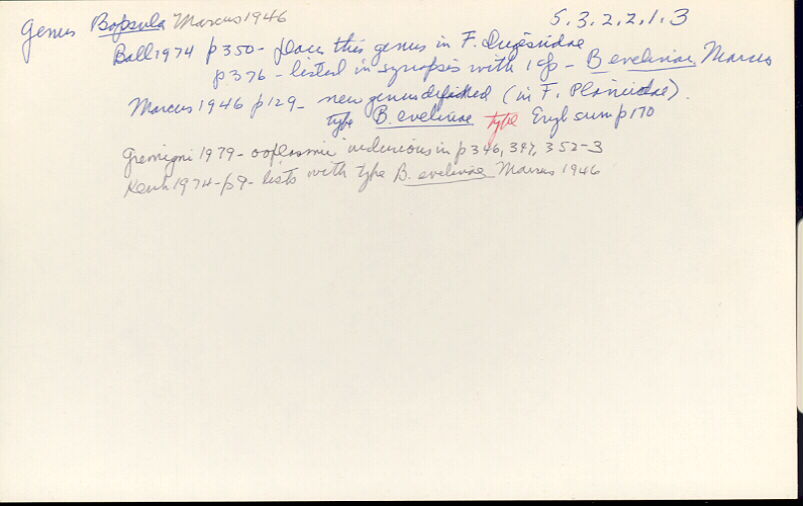 Genus Bopsula Marcus 1946 5.3.2.2.1.3
Ball 1974 p350 - places this genus in F. Dugesiidae
p376 - listed in synopsis with 1 sp - B evelinae Marcus
Marcus 1946 p129 - new genus defined (in F. Planiidae).
type B. evelinae type Engl sum p170
Gremigni 1979 - ooplasmic inclusions in p346, 347, 352-3
Kenk 1974 - p9 - lists with type B. evelinae Marcus 1946